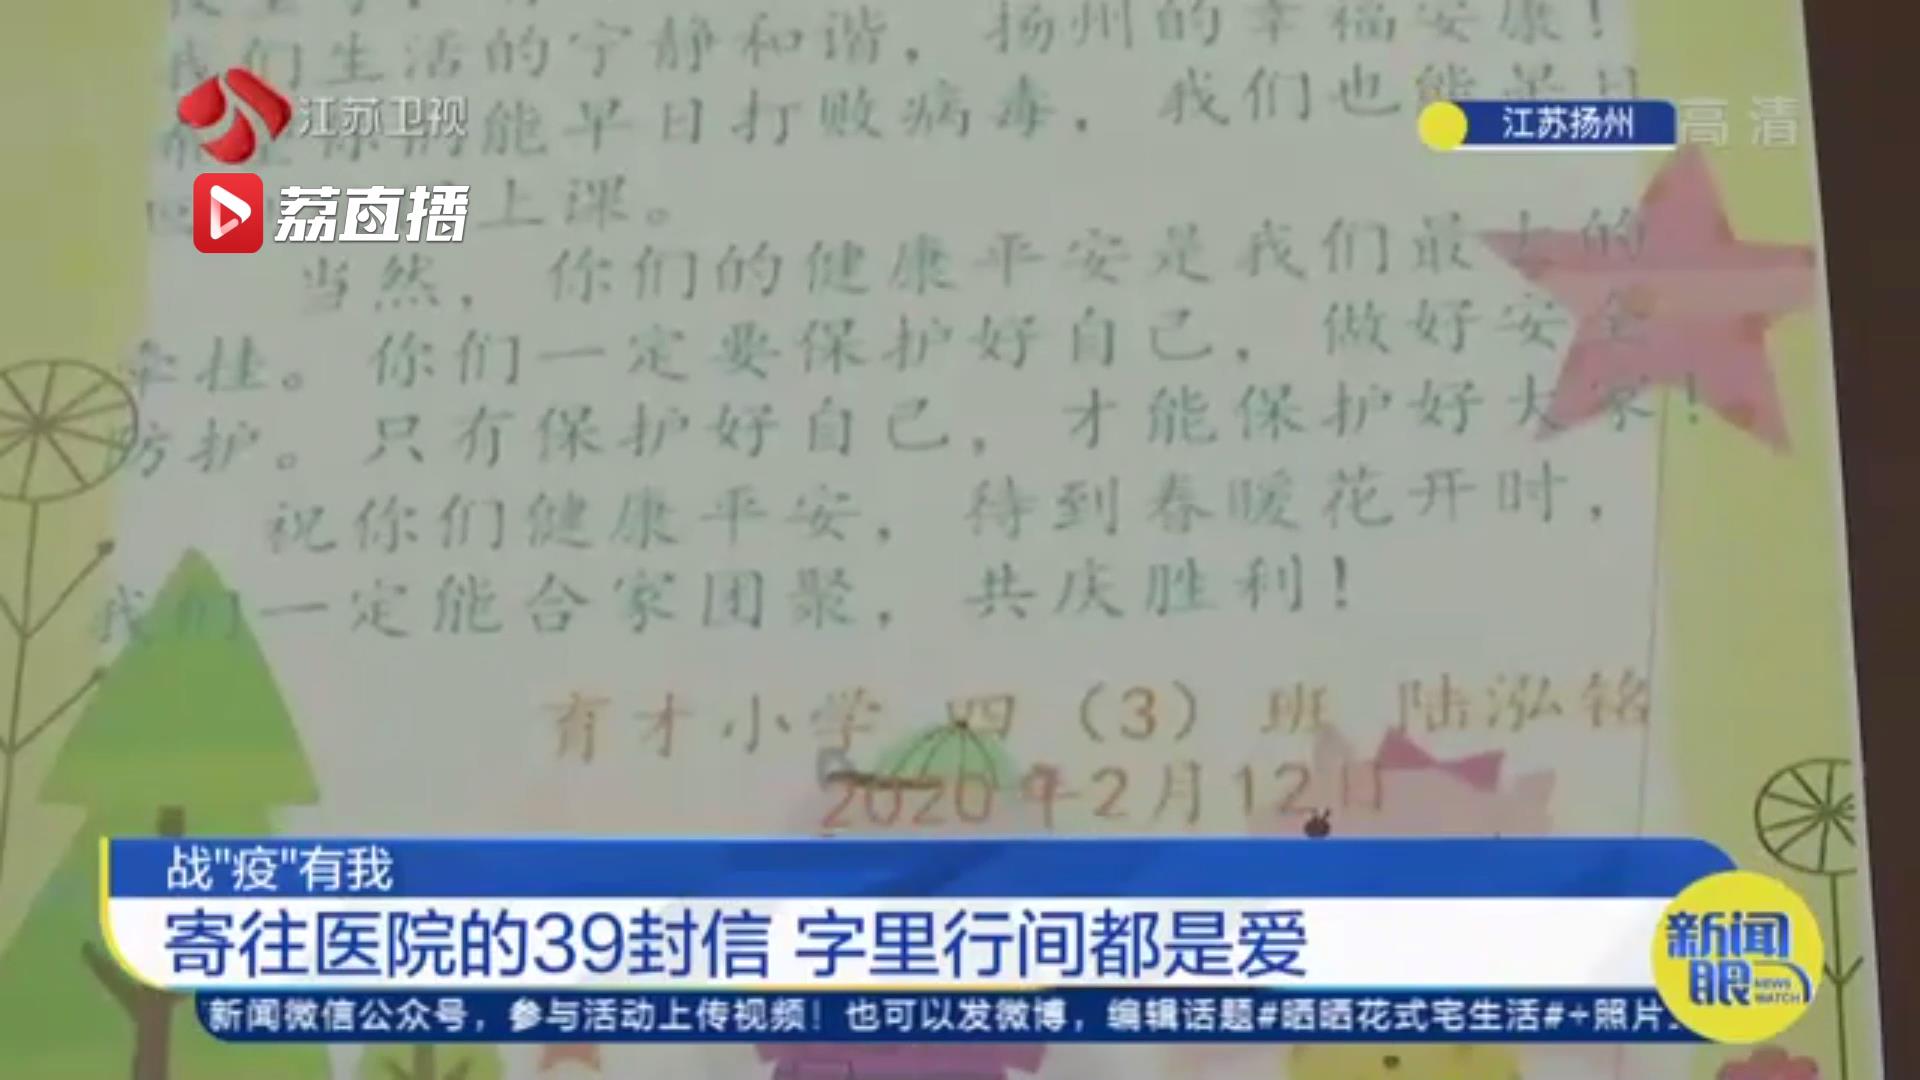 我们生活的宁静和谐，扬州的幸福安康！
你们能早日打败病毒，我们也能早日
上课。
当然，你们的健康平安是我们最大的
牵挂。你们一定要保护好自己，做好安全
防护。只有保护好自己，才能保护好大家！
祝你们健康平安，待到春暖花开时，
我们一定能合家团聚，共庆胜利！
育才小学 四（3）班 陆泓铭
2020年2月12日
江苏卫视
荔直播
江苏扬州
高清
战"疫"有我
寄往医院的39封信 字里行间都是爱
新闻微信公众号，参与活动上传视频！也可以发微博，编辑话题#晒晒花式宅生活#+照片
新闻眼
NEWS WATCH